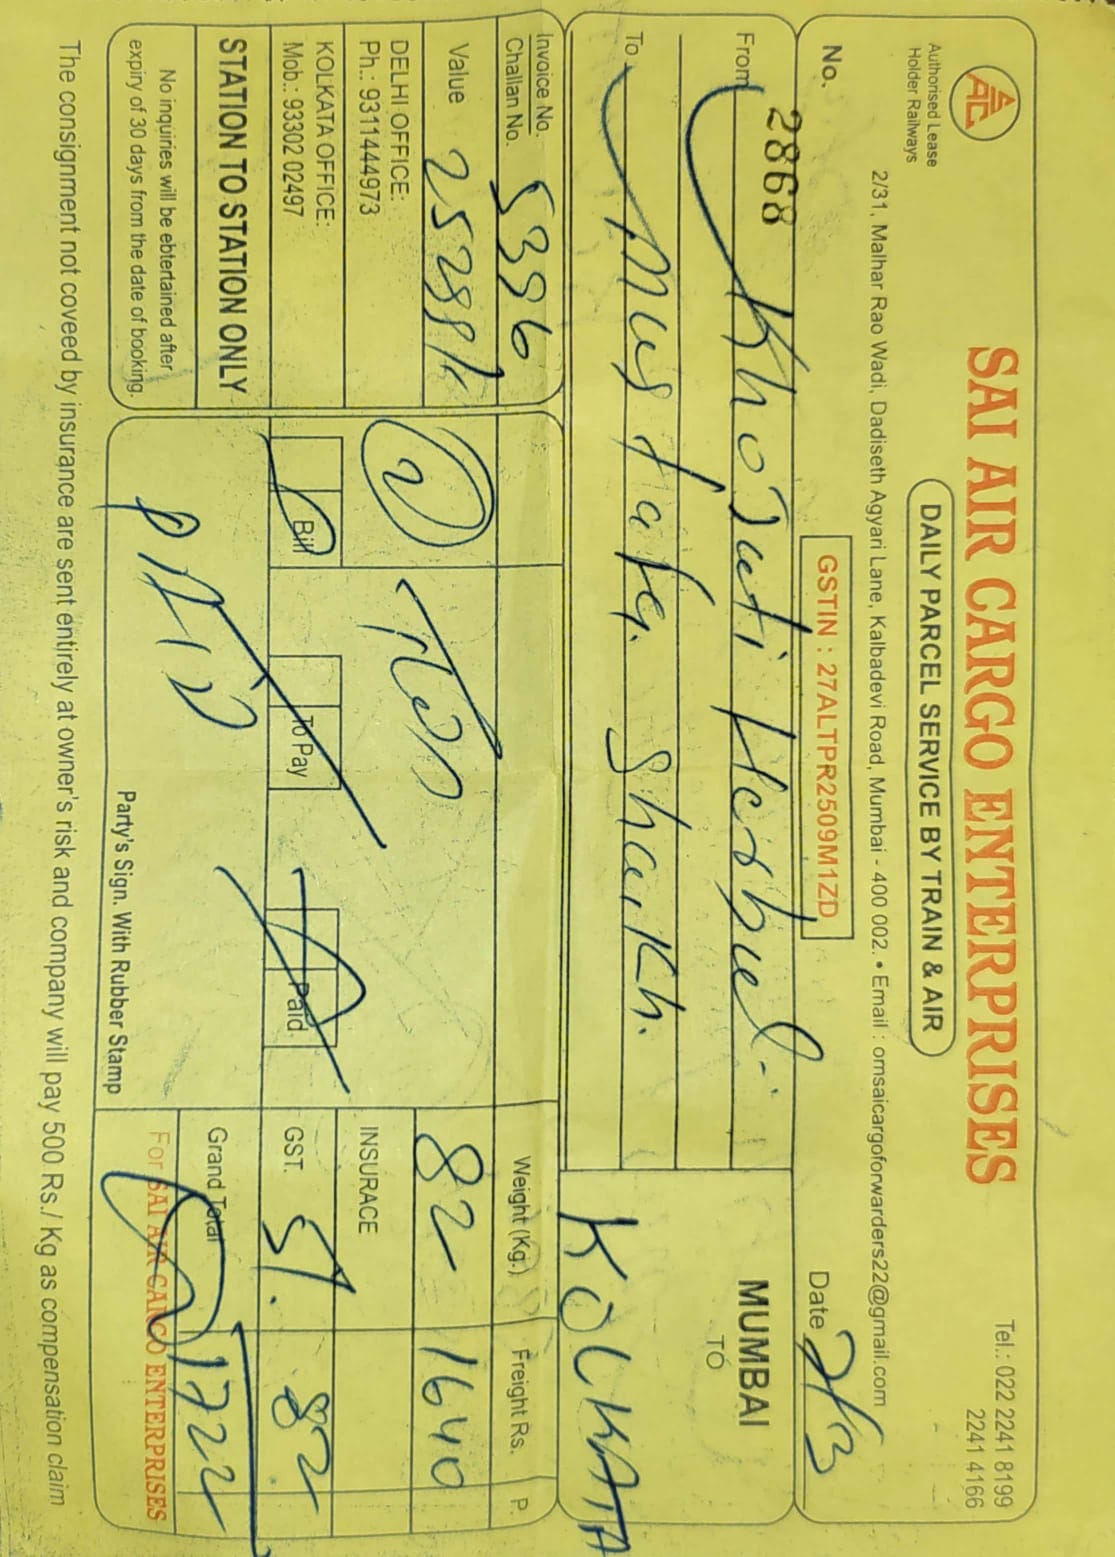 SAI AIR CARGO ENTERPRISES
Tel.: 022 2241 8199
2241 4166
Authorised Lease
Holder Railways
DAILY PARCEL SERVICE BY TRAIN & AIR
2/31, Malhar Rao Wadi, Dadiseth Agyari Lane, Kalbadevi Road, Mumbai - 400 002. • Email : omsaicargoforwarders22@gmail.com
No. 2868
GSTIN : 27ALTPR2509M1ZD
Date
From
MUMBAI
TO
KOLKATA
To Mustafa. Shaikh.
Invoice No.
Challan No. 5396
Weight (Kg.) Freight Rs. P.
Value
82 1640
DELHI OFFICE:
Ph.: 9311444973
INSURACE
KOLKATA OFFICE:
Mob.: 93302 02497
Bill To Pay Paid
GST. 5%. 82
STATION TO STATION ONLY
PAID
Grand Total 1722
No inquiries will be ebtertained after
expiry of 30 days from the date of booking.
Party's Sign. With Rubber Stamp
For SAI AIR CARGO ENTERPRISES
The consignment not coveed by insurance are sent entirely at owner's risk and company will pay 500 Rs./ Kg as compensation claim